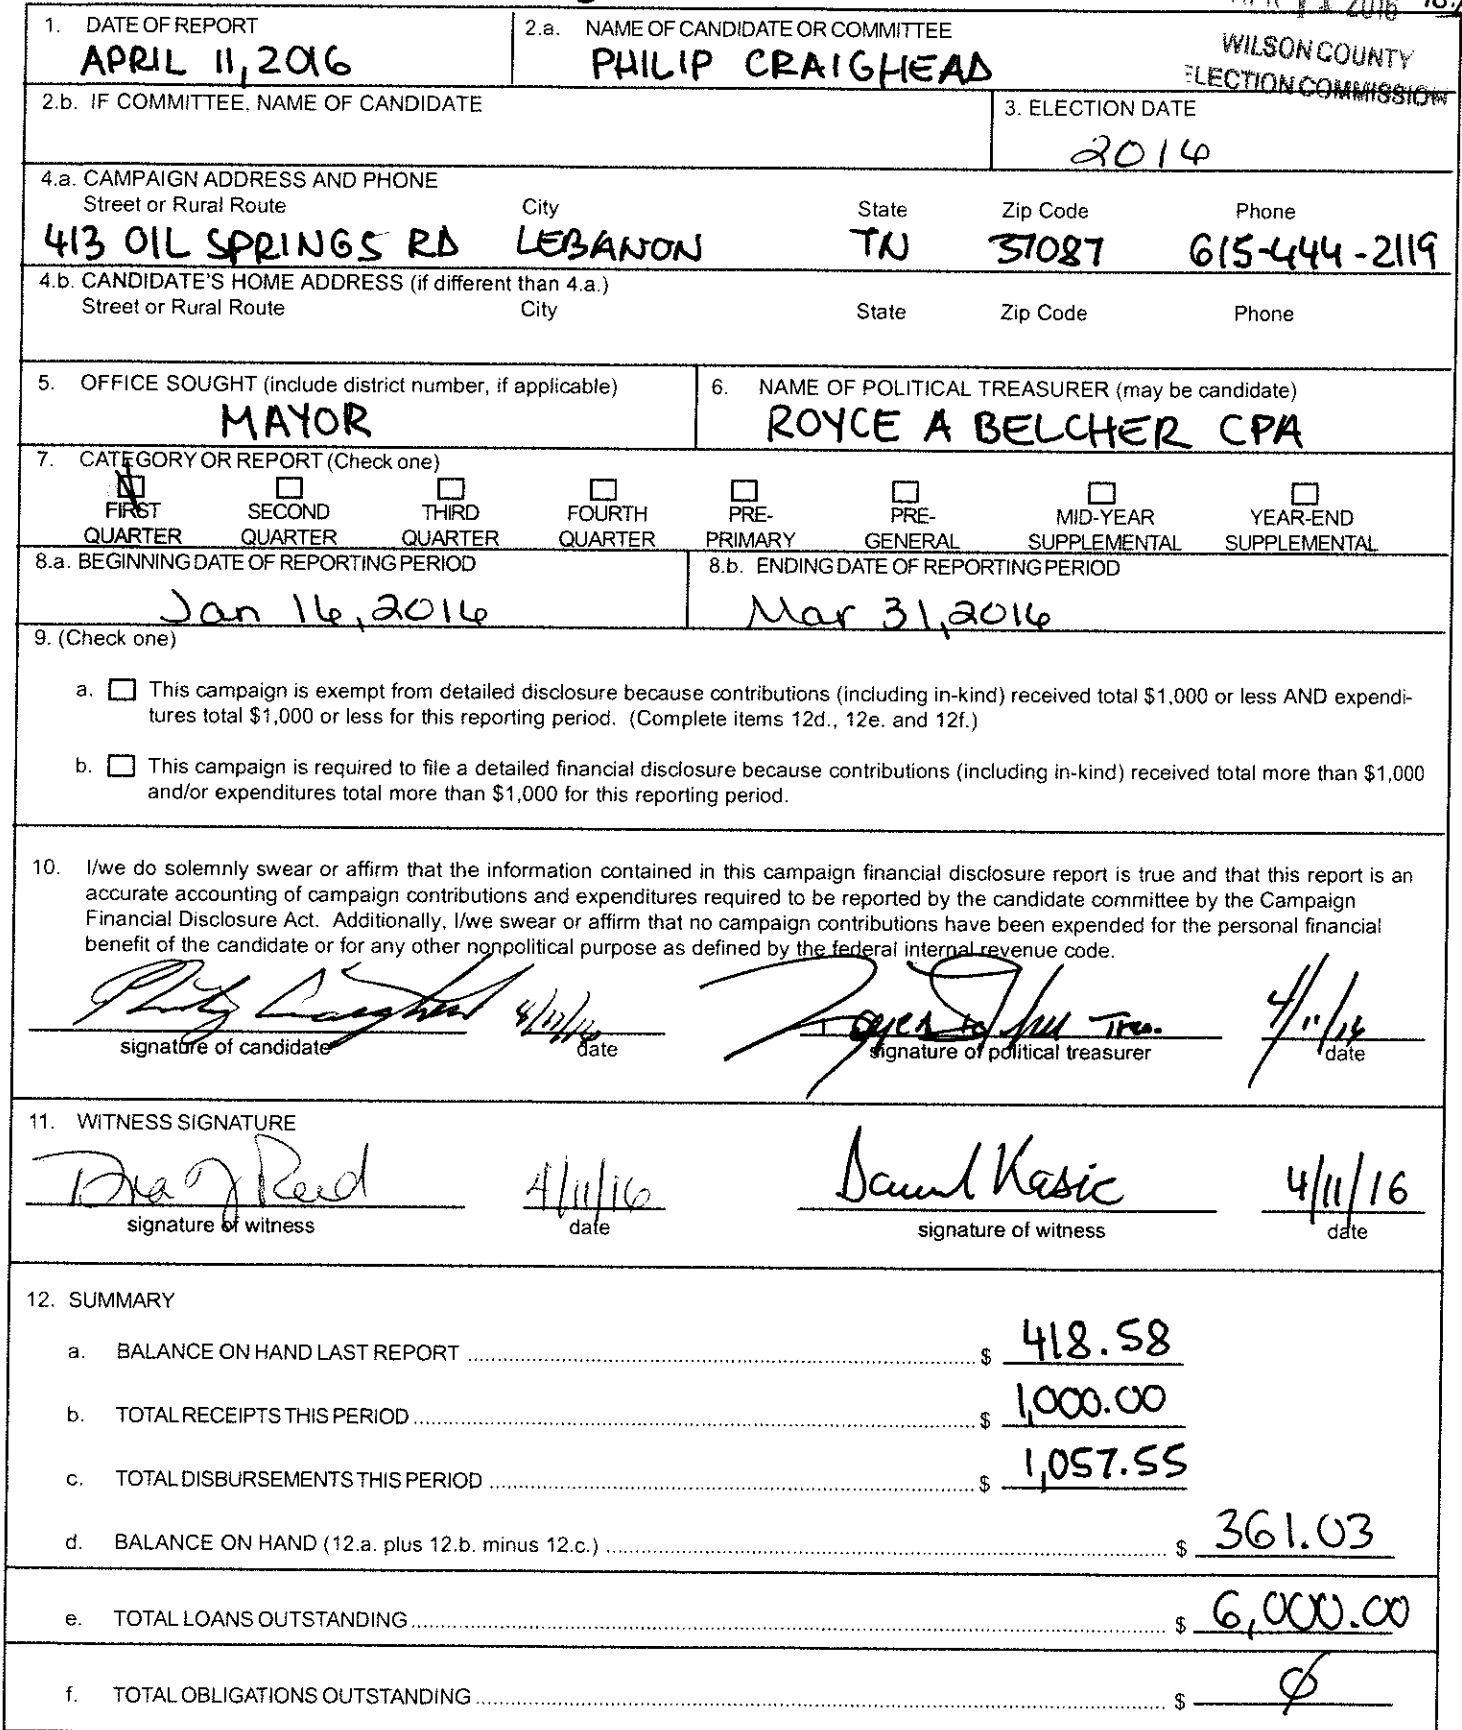 2016
1. DATE OF REPORT
APRIL 11, 2016
2.a. NAME OF CANDIDATE OR COMMITTEE
PHILIP CRAIGHEAD
WILSON COUNTY
ELECTION COMMISSION
2.b. IF COMMITTEE, NAME OF CANDIDATE
3. ELECTION DATE
2016
4.a. CAMPAIGN ADDRESS AND PHONE
Street or Rural Route City State Zip Code Phone
413 OIL SPRINGS RD LEBANON TN 37087 615-444-2119
4.b. CANDIDATE'S HOME ADDRESS (if different than 4.a.)
Street or Rural Route City State Zip Code Phone
5. OFFICE SOUGHT (include district number, if applicable)
MAYOR
6. NAME OF POLITICAL TREASURER (may be candidate)
ROYCE A BELCHER CPA
7. CATEGORY OR REPORT (Check one)
FIRST SECOND THIRD FOURTH PRE- PRE- MID-YEAR YEAR-END
QUARTER QUARTER QUARTER QUARTER PRIMARY GENERAL SUPPLEMENTAL SUPPLEMENTAL
8.a. BEGINNING DATE OF REPORTING PERIOD
Jan 16, 2016
8.b. ENDING DATE OF REPORTING PERIOD
Mar 31, 2016
9. (Check one)
a. This campaign is exempt from detailed disclosure because contributions (including in-kind) received total $1,000 or less AND expendi-
tures total $1,000 or less for this reporting period. (Complete items 12d., 12e. and 12f.)
b. This campaign is required to file a detailed financial disclosure because contributions (including in-kind) received total more than $1,000
and/or expenditures total more than $1,000 for this reporting period.
10. I/we do solemnly swear or affirm that the information contained in this campaign financial disclosure report is true and that this report is an
accurate accounting of campaign contributions and expenditures required to be reported by the candidate committee by the Campaign
Financial Disclosure Act. Additionally, I/we swear or affirm that no campaign contributions have been expended for the personal financial
benefit of the candidate or for any other nonpolitical purpose as defined by the federal internal revenue code.
Philip Craighead 4/11/16 Tres. 4/11/16
signature of candidate date signature of political treasurer date
11. WITNESS SIGNATURE
Reed 4/11/16 Kasic 4/11/16
signature of witness date signature of witness date
12. SUMMARY
a. BALANCE ON HAND LAST REPORT $ 418.58
b. TOTAL RECEIPTS THIS PERIOD $ 1,000.00
c. TOTAL DISBURSEMENTS THIS PERIOD $ 1,057.55
d. BALANCE ON HAND (12.a. plus 12.b. minus 12.c.) $ 361.03
e. TOTAL LOANS OUTSTANDING $ 6,000.00
f. TOTAL OBLIGATIONS OUTSTANDING $ Ø